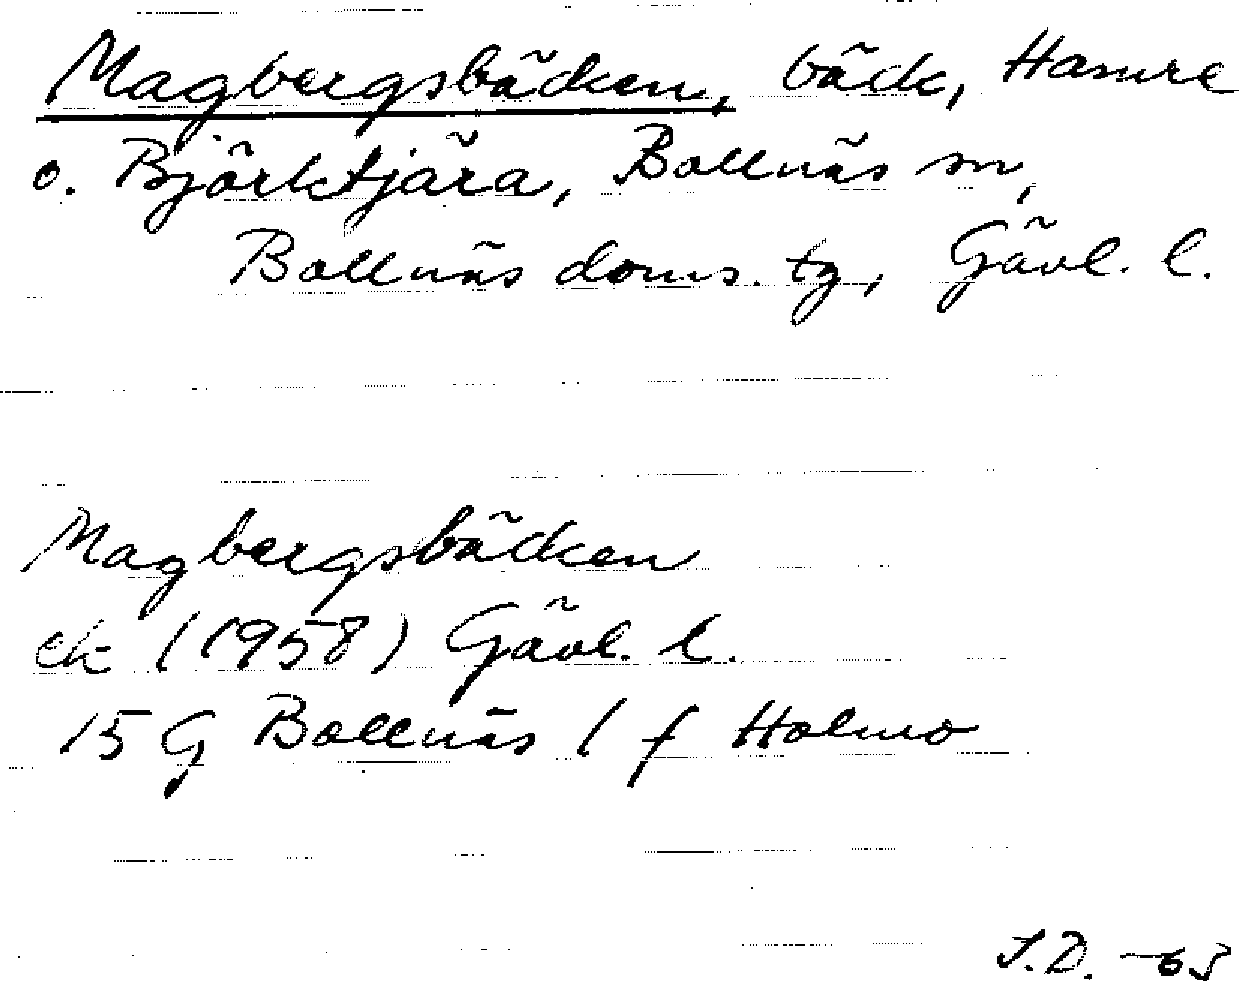 Magbergsbäcken, bäck, Hamre
o. Björktjära, Bollnäs sn,
Bollnäs doms. tg, Gävl. l.
Magbergsbäcken
ek (1958) Gävl. l.
15 G Bollnäs / f Holmo
S.D. -63